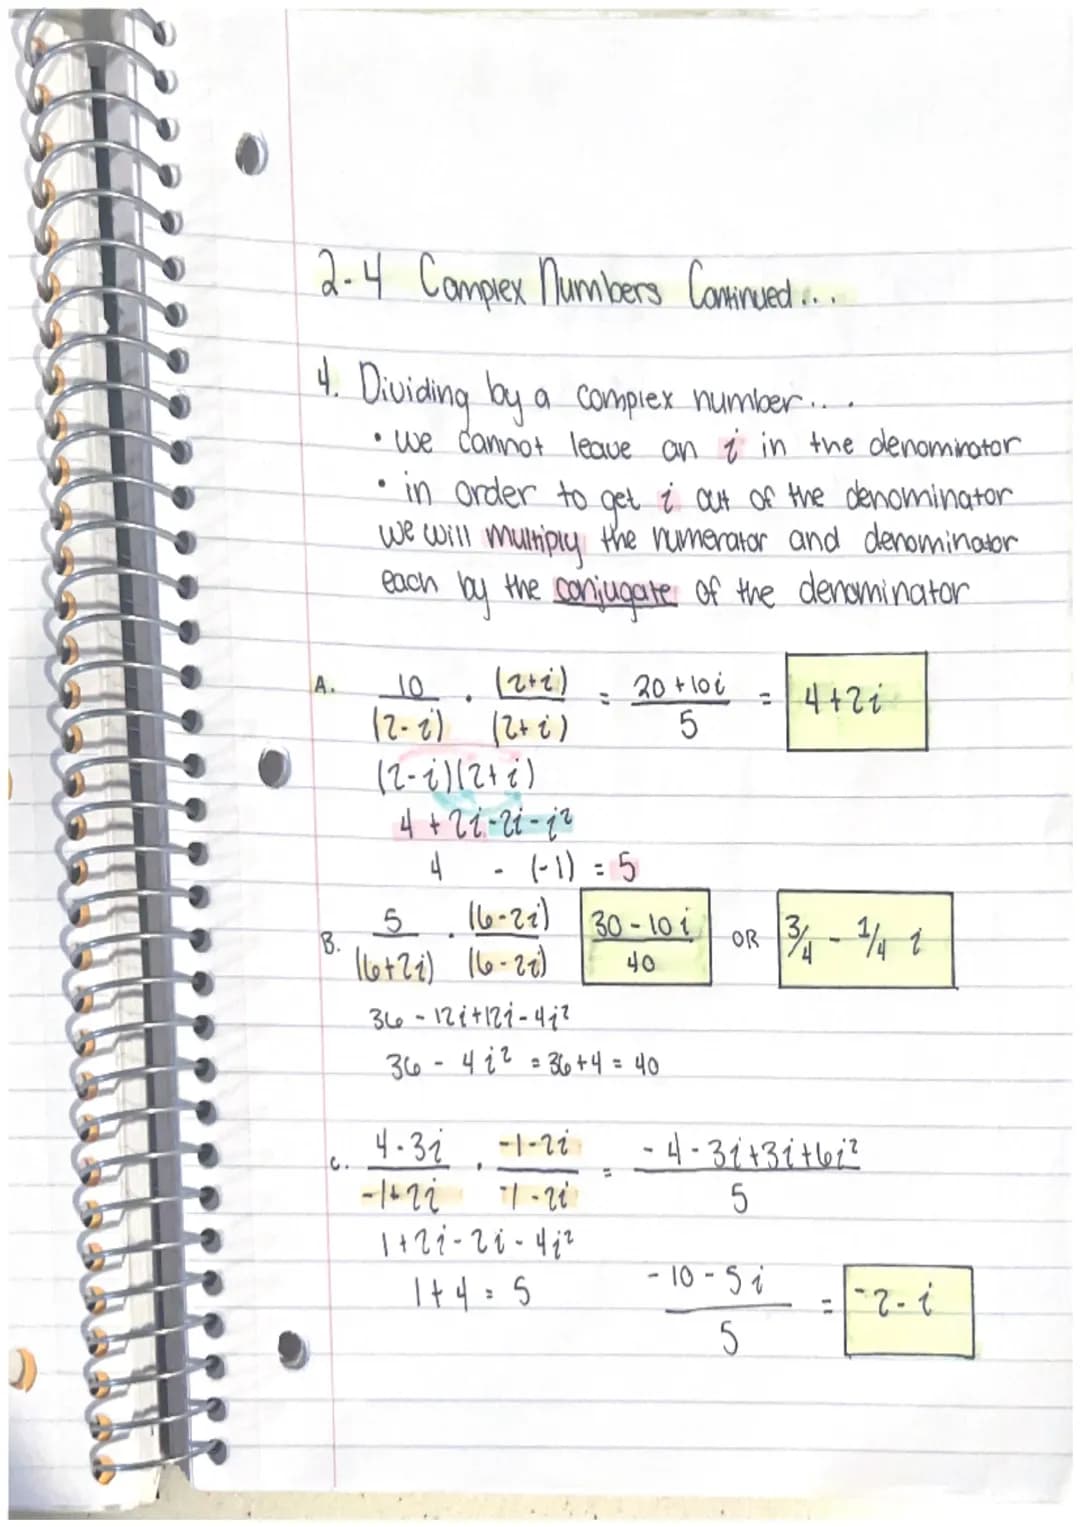 2-4 Complex Numbers Continued...
4. Dividing by a complex number...
• we cannot leave an i in the denominator
• in order to get i out of the denominator
we will multiply the numerator and denominator
each by the conjugate of the denominator
A. 10/(2-i) · (2+i)/(2+i) = 20+10i/5 = 4+2i
(2-i)(2+i)
4+2i-2i-i²
4 - (-1) = 5
B. 5/(6+2i) · (6-2i)/(6-2i) 30-10i/40 OR 3/4 - 1/4 i
36-12i+12i-4i²
36-4i² = 36+4 = 40
C. 4-3i/-1+2i · -1-2i/-1-2i = -4-3i+3i+6i²/5
1+2i-2i-4i²
1+4=5
-10-5i/5 = -2-i